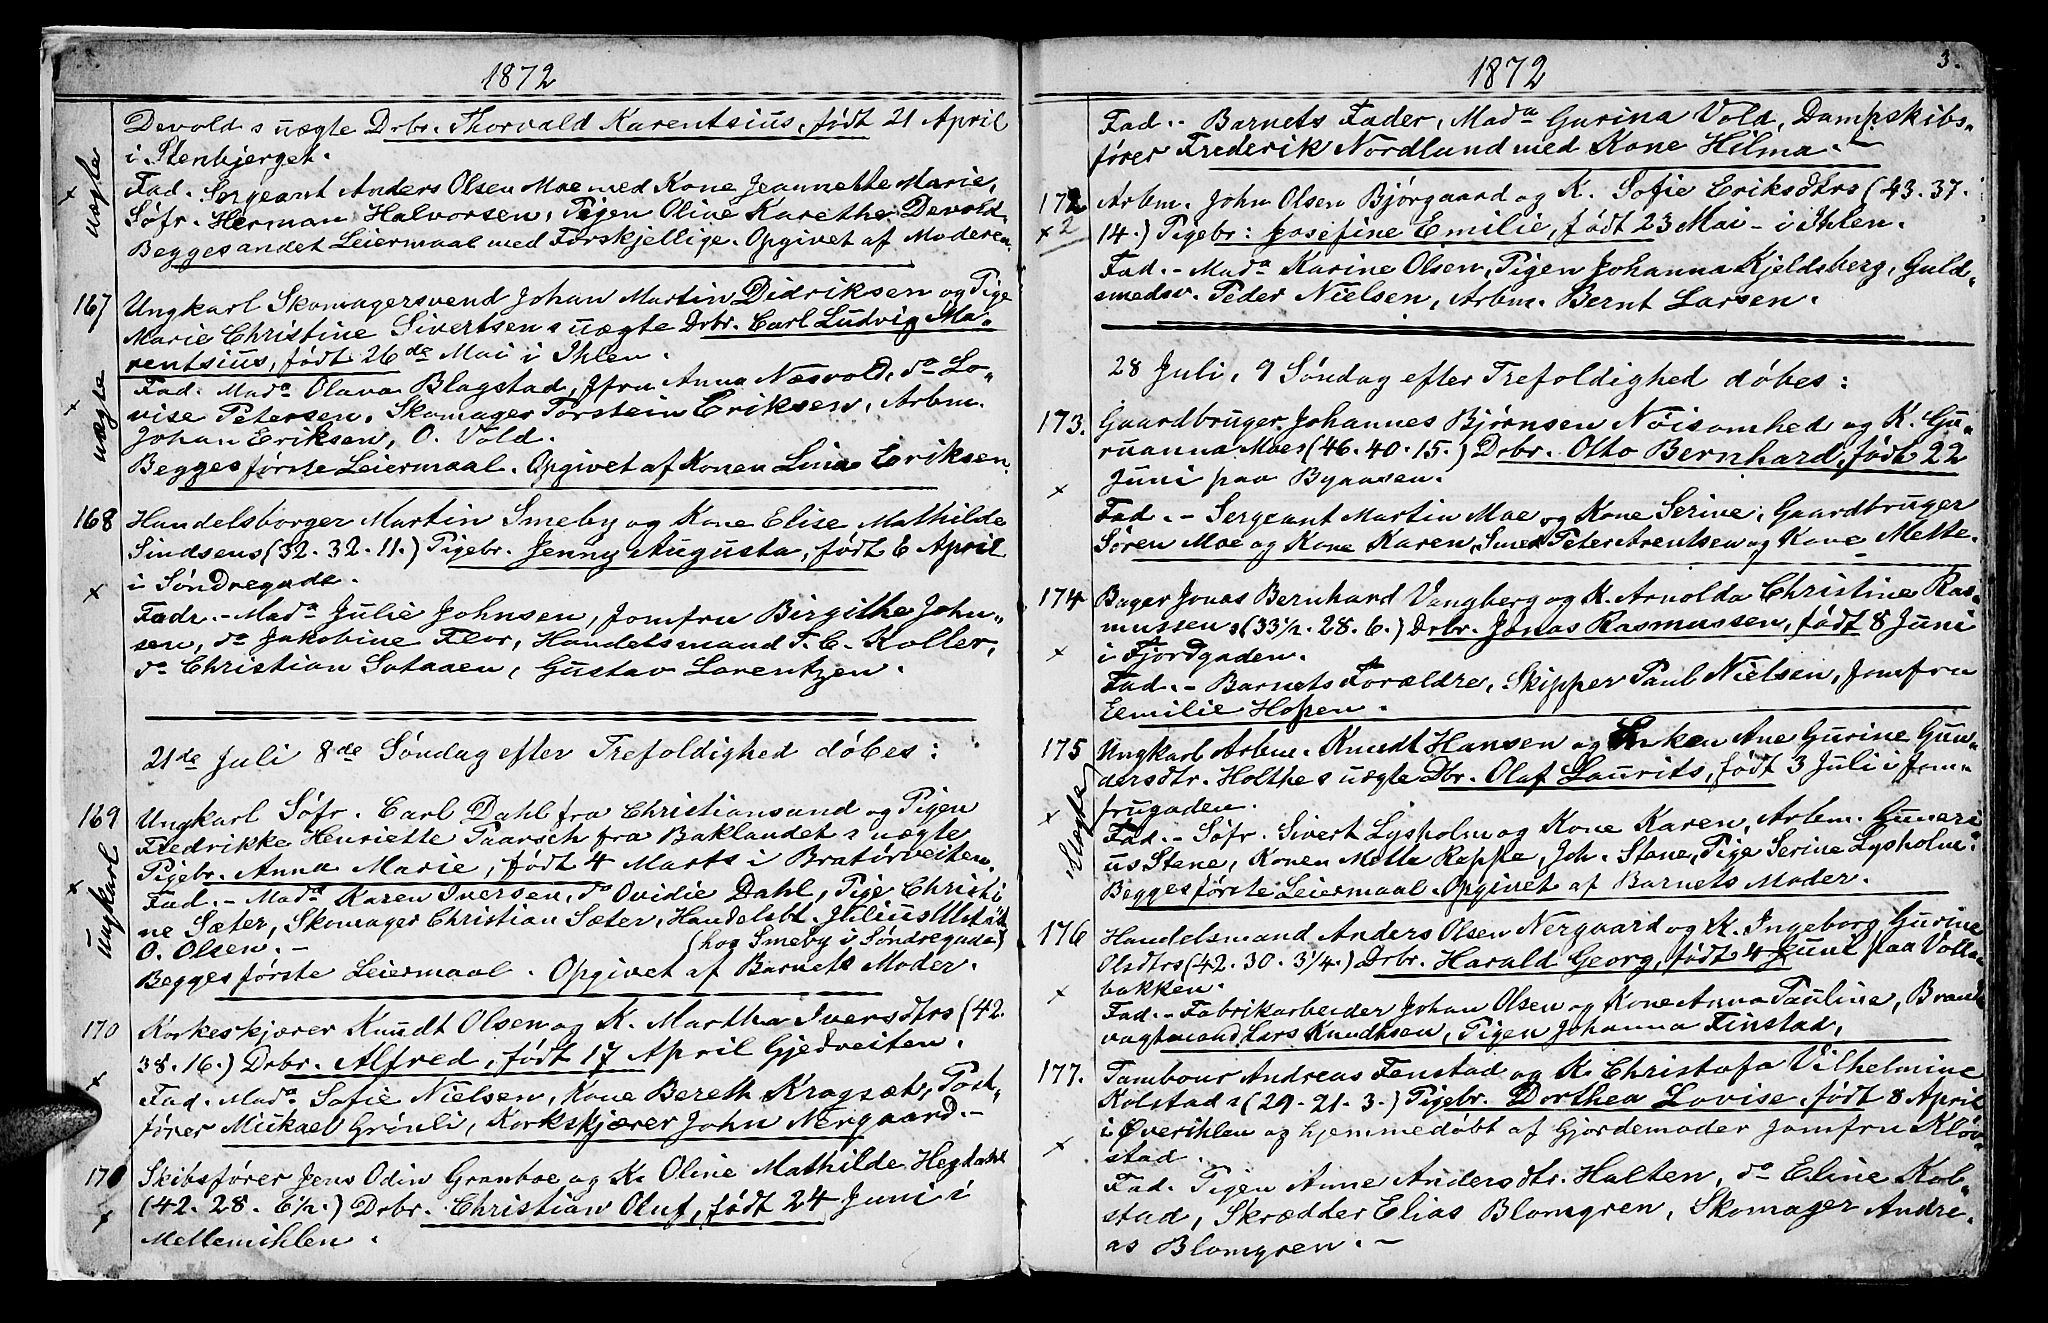 1872
Devold s uægte Drbr. Thorvald Karentsius, født 21 April
i Stenbjerget.
uægte
Fad. Sergeant Anders Olsen Moe med Kone Jeannette Marie,
Søfr. Herman Halvorsen, Pigen Oline Karethe Devold.
Begges andet Leiermaal med Forskjellige. Opgivet af Moderen.
167
Ungkarl Skomagersvend Johan Martin Didriksen og Pige
Marie Christine Sivertsen s uægte Drbr. Carl Ludvig Ma-
rentsius, født 26de Mai i Ihlen.
uægte
Fad. Mada Olava Blagstad, Jfru Anna Næsvold, do Lo-
vise Petersen, Skomager Torstein Eriksen, Arbm.
Johan Eriksen, O. Vold.
Begges første Leiermaal. Opgivet af Konen Lina Eriksen.
168
Handelsborger Martin Smeby og Kone Elise Mathilde
Sindsens (32. 32. 11.) Pigebr. Jenny Augusta, født 6 April
i Søndregade.
Fadr. - Mada Julie Johnsen, Jomfru Birgithe John-
sen, do Jakobine Flor, Handelsmand F. C. Koller,
do Christian Sataaen, Gustav Lorentzen.
21de Juli 8de Søndag efter Trefoldighed døbes:
169
Ungkarl Søfr. Carl Dahl fra Christiansund og Pigen
Fredrikke Henriette Paarsch fra Baklandet s uægte
Pigebr. Anna Marie, født 4 Marts i Bratørveiten.
ungkarl
Fad. - Mada Karen Iversen, do Ovidie Dahl, Pige Christi
ne Sæter, Skomager Christian Sæter, Handelsbt. Julius
O. Olsen. - (hos Smeby i Søndregade)
Begges første Leiermaal. Opgivet af Barnets Moder.
170
Korkeskjærer Knudt Olsen og K. Martha Iversdtrs (42.
38. 16.) Drbr. Alfred, født 17 April Gjedveiten.
Fad. Mada Sofie Nielsen, Kone Bereth Kragsæt, Post-
fører Mickael Grønli, Korkskjærer John Nergaard. -
171
Skibsfører Jens Odin Granboe og K. Oline Mathilde Hegdahl
(42. 28. 6½.) Drbr. Christian Oluf, født 24 Juni i
Mellemihlen.
1872
3.
Fad. - Barnets Fader, Mada Gurina Vold, Dampskibs-
fører Frederik Nordlund med Kone Hilma. -
172
2
Arbm. John Olsen Bjørgaard og K. Sofie Eriksdtrs (43. 37.
14.) Pigebr: Josefine Emilie, født 23 Mai - i Ihlen.
Fad. - Mada Karine Olsen, Pigen Johanna Kjeldsberg, Guld-
smedsv. Peder Nielsen, Arbm. Bernt Larsen.
28 Juli, 9 Søndag efter Trefoldighed døbes:
173.
Gaardbruger Johannes Bjørnsen Nøisomhed og K. Gu-
ruanna Moes (46. 40. 15.) Drbr. Otto Bernhard, født 22
Juni paa Byaasen.
Fad. - Sergeant Martin Moe og Kone Serine, Gaardbruger
Søren Moe og Kone Karen, Smed Peter Arentsen og Kone Mette.
174
Bager Jonas Bernhard Vangberg og K. Arnolda Christine Ras-
mussens (33½. 28. 6.) Drbr. Jonas Rasmussen, født 8 Juni
i Fjordgaden.
Fad. - Barnets Forældre, Skipper Paul Nielsen, Jomfru
Eemilie Hopen.
175
Ungkarl Arbm. Knudt Hansen og Enken Ane Gurine Gun-
dersdtr. Holthe s uægte Dbr. Olaf Laurits, født 3 Juli i Jom-
frugaden.
Uægte
Fad. - Søfr. Sivert Lysholm og Kone Karen, Arbm. Guneri-
us Stene, Konen Metta Rappe, Joh. Stene, Pige Serine Lysholm.
Begges første Leiermaal. Opgivet af Barnets Moder.
176
Handelsmand Anders Olsen Nergaard og K. Ingeborg Gurine
Olsdtrs (42. 30. 3¼.) Drbr. Harald Georg, født 4 Juni paa Volla-
bakken.
Fad. - Fabrikarbeider Johan Olsen og Kone Anna Pauline, Brand-
vagtmand Lars Knudtsen, Pigen Johanna Finstad.
177.
Tambour Andreas Fenstad og K. Christofa Vilhelmine
Kolstad s (29. 21. 3.) Pigebr. Dorthea Lovise, født 8 April
i Øverihlen og hjemmedøbt af Gjordemoder Jomfru Kløv-
stad.
Fad. Pigen Anne Andersdtr. Halten, do Eline Kol-
stad, Skrædder Elias Blomgren, Skomager Andre-
as Blomgren. -